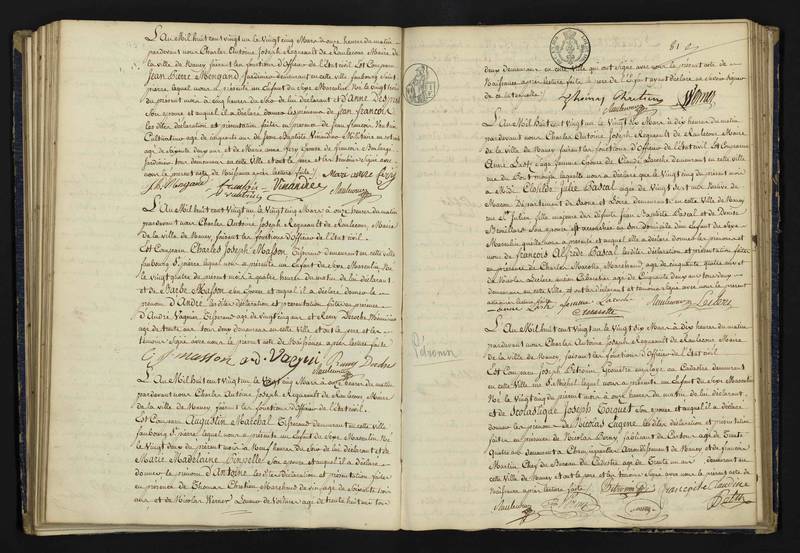 L'An Mil huit cent vingt un le Vingt cinq Mars à onze heures du matin
pardevant nous Charles Antoine Joseph Regneault de Raulecourt Maire
de la ville de Nancy faisant les fonctions d'Officier de l'Etat civil. Est Comparu
Jean Pierre Mengand Jardinier demeurant en cette ville faubourg Saint
pierre lequel nous a présenté un Enfant du Sexe Masculin Né le vingt
du présent mois à cinq heures du Soir de lui déclarant et d'Anne
Son épouse et auquel il a déclaré donner les prénoms de Jean françois
les dites déclaration et présentation faites en présence de Jean François
Cultivateur agé de cinquante ans de Jean Baptiste Vinandree Militaire
agé de Soixante deux ans et de Marie anne Epouse de francois
Jardinier tous demeurant en cette Ville et ont le père et les témoins signé avec
nous le présent acte de Naissance après lecture faite /.
Vinandree
L'An Mil huit cent Vingt un le Vingt cinq Mars à onze heures du matin
pardevant nous Charles Antoine Joseph Regneault de Raulecourt, Maire
de la ville de Nancy, faisant les fonctions d'Officier de l'Etat civil.
Est Comparu Charles Joseph Masson, Tisserand demeurant en cette ville
faubourg St. pierre, lequel nous a présenté un Enfant du Sexe Masculin, Né
le vingt quatre du présent mois, à quatre heures du matin de lui déclarant
et de Barbe Husson son Epouse et auquel il a déclaré donner le
prénom d'André les dites déclaration et présentation faites en présence
d'André Vagner Tisserand agé de vingt cinq ans et Remy Deroche
agé de trente ans tous deux demeurant en cette Ville et ont le père et les
témoins signé avec nous le présent acte de Naissance après lecture faite
C J masson
L'An Mil huit cent Vingt un le Vingt cinq Mars à onze heures du matin
pardevant nous Charles Antoine Joseph Regneault de Raulecourt, Maire
de la ville de Nancy, faisant les fonctions d'Officier de l'Etat civil.
Est Comparu Augustin Maréchal Tisserand demeurant en cette ville
faubourg St. pierre, lequel nous a présenté un Enfant du Sexe Masculin, Né
le Vingt deux du présent mois à Neuf heures du Soir de lui déclarant et de
Marie Madelaine Son épouse et auquel il a déclaré
donner le prénom d'Antoine les dites déclaration et présentation faites
en présence de Thomas Chretien Marchand de vin agé de Soixante trois
ans et de Nicolas Werner Loueur de Voitures agé de trente huit ans tous
81
deux demeurant en cette Ville qui ont signé avec nous le présent acte de
Naissance après lecture faite le père de l'Enfant ayant déclaré ne Savoir signer
de ce interpellé /.
Thomas Chretien
L'An Mil huit cent Vingt un le Vingt Six Mars à dix heures du matin
pardevant nous Charles Antoine Joseph Regneault de Raulecourt Maire
de la Ville de Nancy, faisant les fonctions d'Officier de l'Etat civil. Est Comparue
Anne Sage femme Epouse de Claude Laroche demeurant en cette ville
rue du pont mouja laquelle nous a déclaré que le Vingt cinq du présent mois
à Midi Clotilde Julie Pascal agée de Vingt Sept ans Native de
Macon Département de Saone et Loire demeurant en cette Ville de Nancy
rue St. Julien fille majeure des défunts Jean Baptiste Pascal et de Denise
son époux est accouchée en son domicile d'un Enfant du Sexe
Masculin qu'elle nous a présenté et auquel elle a déclaré donner les prénoms et
nom de françois Alfred Pascal les dites déclaration et présentation faites
en présence de Charles Marotte Marchand, agé de cinquante quatre ans et
de Nicolas Leclerc ancien Cafetier agé de Cinquante deux ans tous deux
demeurant en cette Ville, et ont la déclarante et témoins signé avec nous le présent
acte après lecture faite
Leclerc
L'An Mil huit cent Vingt un le Vingt Six Mars à dix heures du matin
pardevant nous Charles Antoine Joseph Regneault de Raulecourt Maire
de la ville de Nancy, faisant les fonctions d'Officier de l'Etat civil
Est Comparu Joseph Pétronin Géomètre employé au Cadastre demeurant
en cette Ville rue St. Michel lequel nous a présenté un Enfant du Sexe Masculin
Né le Vingt cinq du présent mois à onze heures du matin de lui déclarant,
et de Scolastique Joseph Tocquet Son épouse et auquel il a déclaré
donner les prénoms de Nicolas Eugène les dites déclaration et présentation
faites en présence de Nicolas agé de Trente
Quatre ans demeurant à Champigneulles arrondissement de Nancy et de françois
Martin Chef de Bureau du Cadastre agé de Trente un ans demeurant en
cette Ville de Nancy et ont le père et les témoins signé avec nous le présent acte de
Naissance après lecture faite /.
Pétronin